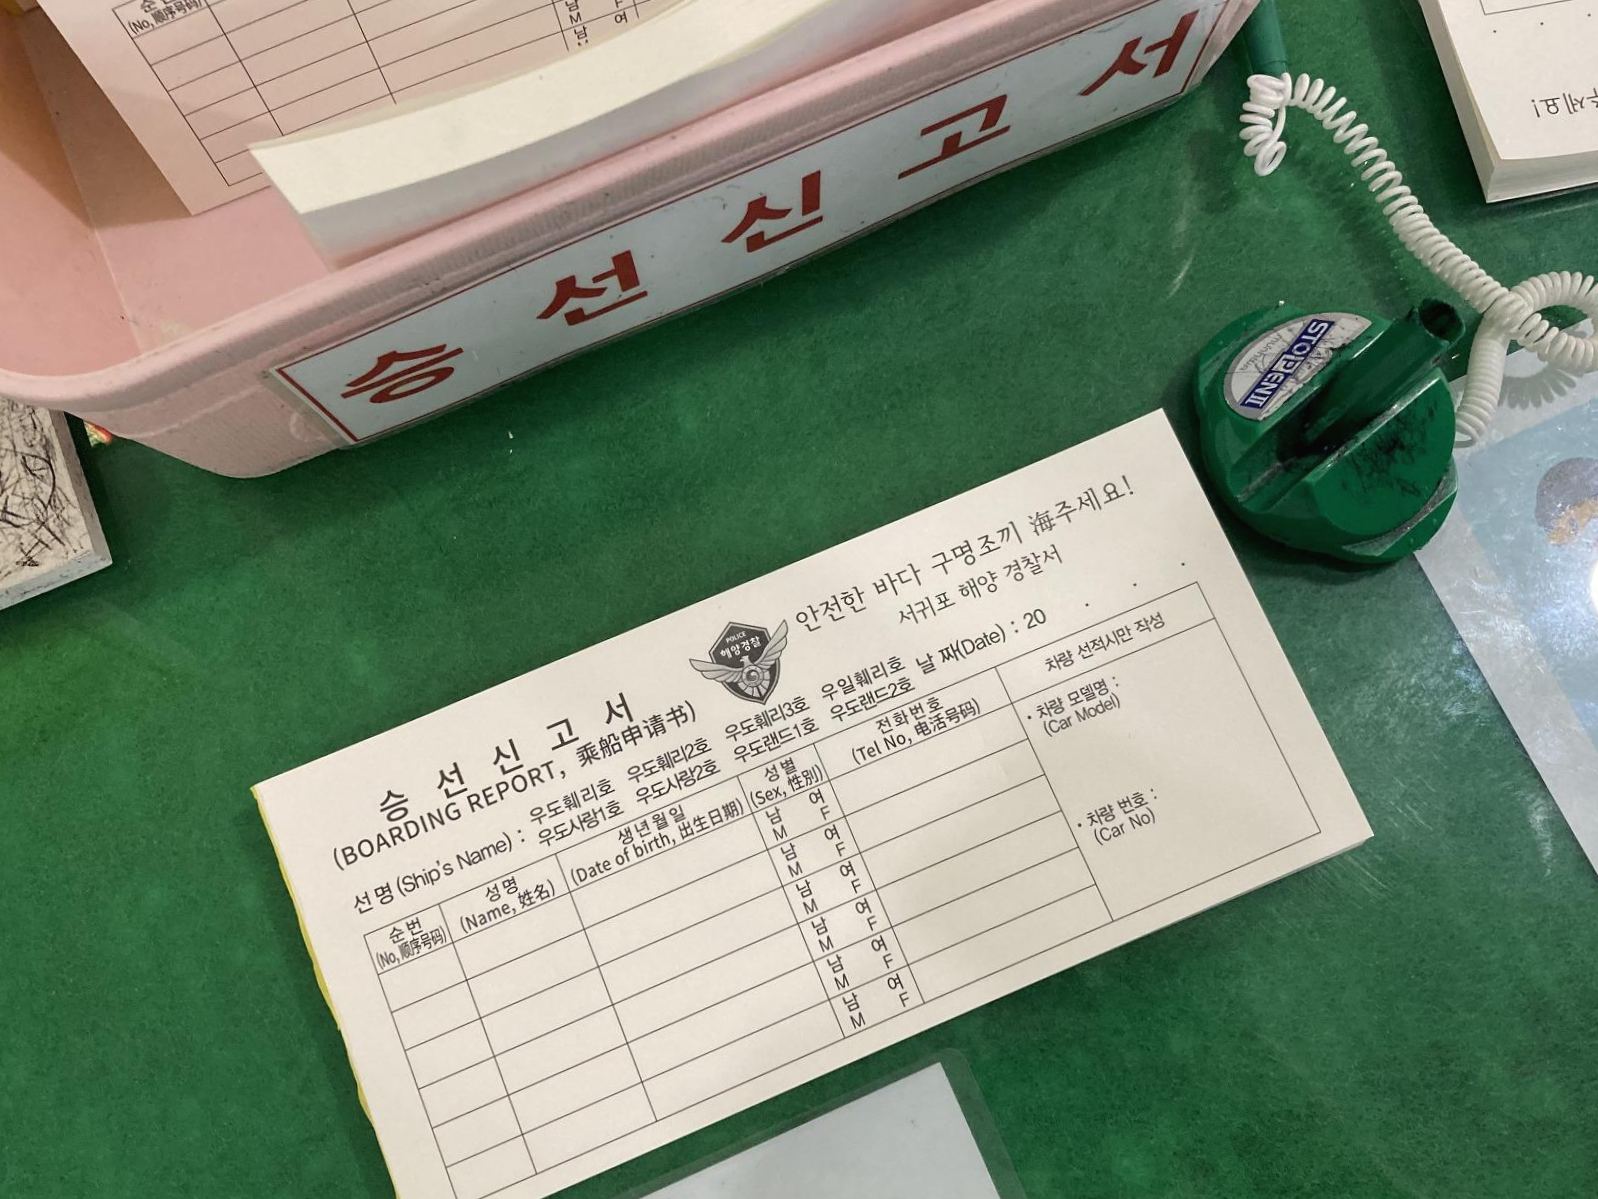 순번
(No, 順序号码)
남
M
F
여
남
승선신고서
주세요!
STOPEN II
안전한 바다 구명조끼 海주세요!
서귀포 해양 경찰서
POLICE
해양경찰
승 선 신 고 서
(BOARDING REPORT, 乘船申请书)
날 짜(Date) : 20 . . .
선 명 (Ship's Name) :
우도훼리호 우도훼리2호 우도훼리3호 우일훼리호
우도사랑1호 우도사랑2호 우도랜드1호 우도랜드2호
순 번
(No, 顺序号码)
성 명
(Name, 姓名)
생 년 월 일
(Date of birth, 出生日期)
성 별
(Sex, 性别)
전 화 번 호
(Tel No, 电活号码)
차량 선적시만 작성
남 여
M F
남 여
M F
남 여
M F
남 여
M F
남 여
M F
남 여
M F
• 차량 모델명 :
(Car Model)
• 차량 번호 :
(Car No)